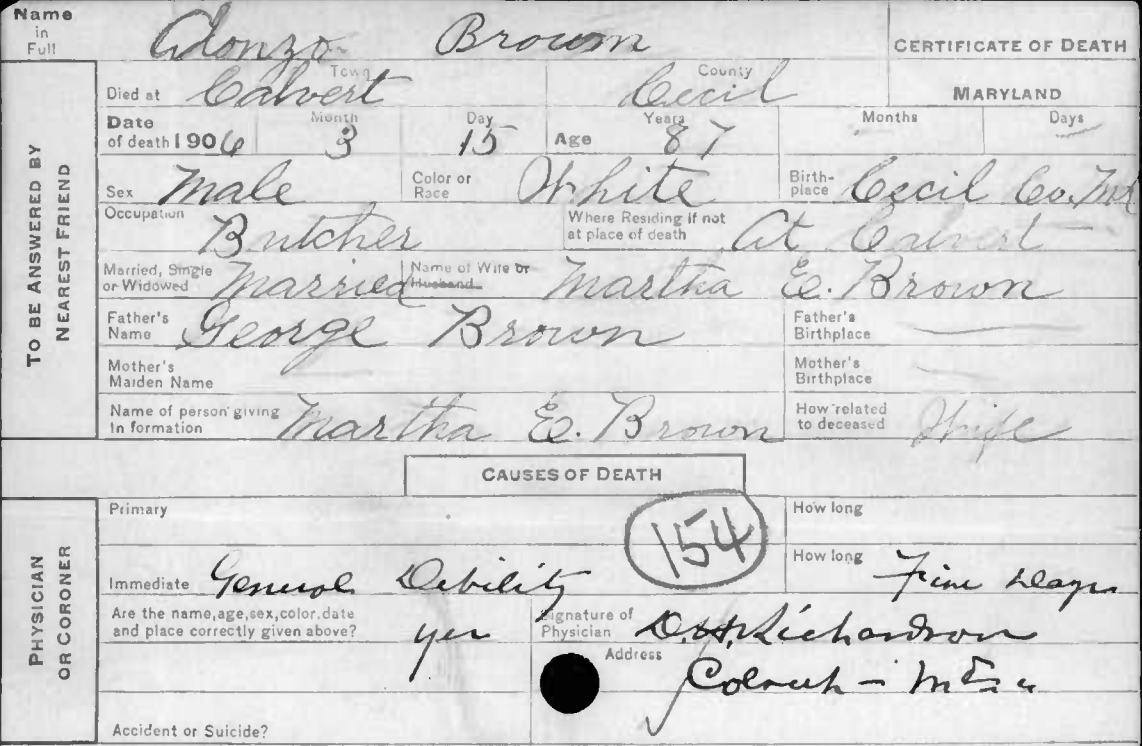 Name in Full Alonzo Brown CERTIFICATE OF DEATH
TO BE ANSWERED BY NEAREST FRIEND
Died at Town Calvert County Cecil MARYLAND
Date of death 1906 Month 3 Day 15 Age Years 87 Months Days
Sex Male Color or Race White Birth-place Cecil Co. Md
Occupation Butcher Where Residing if not at place of death At Calvert
Married, Single or Widowed Married Name of Wife or Husband Martha E. Brown
Father's Name George Brown Father's Birthplace
Mother's Maiden Name Mother's Birthplace
Name of person giving In formation Martha E. Brown How related to deceased Wife
CAUSES OF DEATH
PHYSICIAN OR CORONER
Primary 154 How long
Immediate General Debility How long Five days
Are the name, age, sex, color, date and place correctly given above? yes Signature of Physician Richardson
Address
Accident or Suicide?